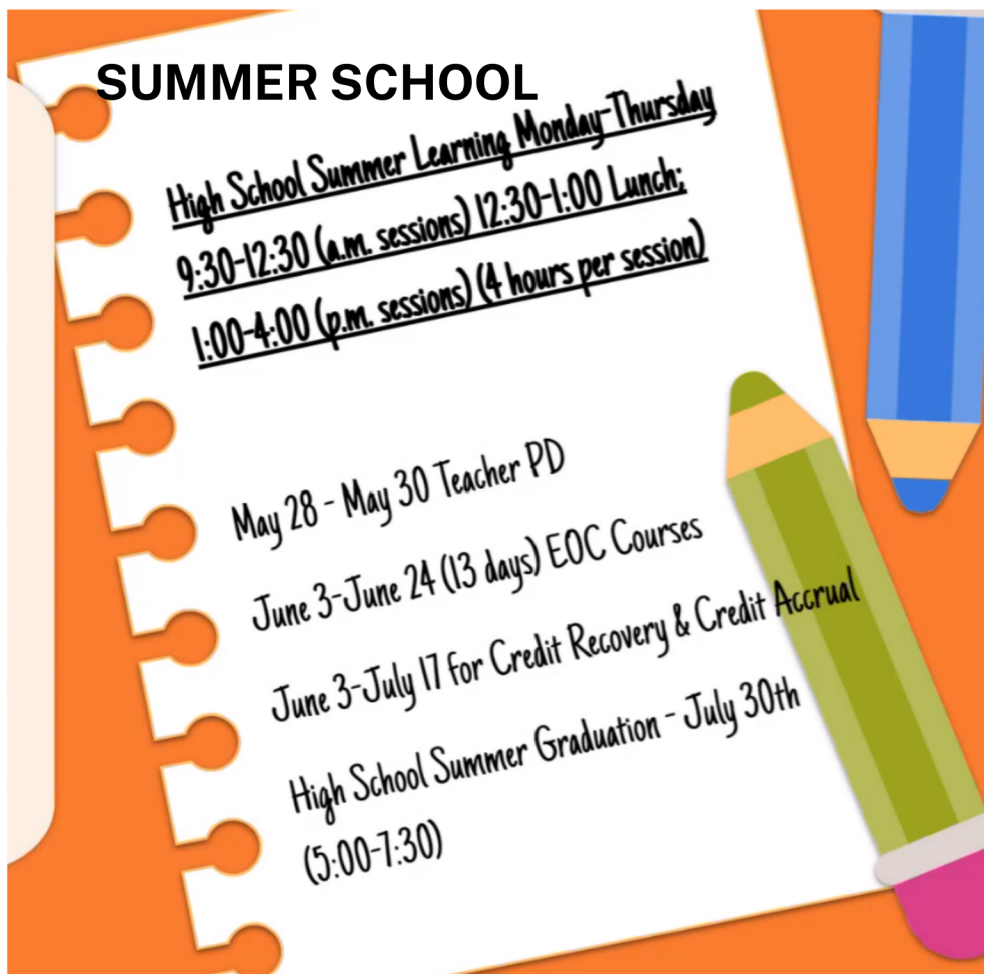 SUMMER SCHOOL
High School Summer Learning Monday-Thursday
9:30-12:30 (a.m. sessions) 12:30-1:00 Lunch;
1:00-4:00 (p.m. sessions) (4 hours per session)
May 28 - May 30 Teacher PD
June 3-June 24 (13 days) EOC Courses
June 3-July 17 for Credit Recovery & Credit Accrual
High School Summer Graduation - July 30th
(5:00-7:30)